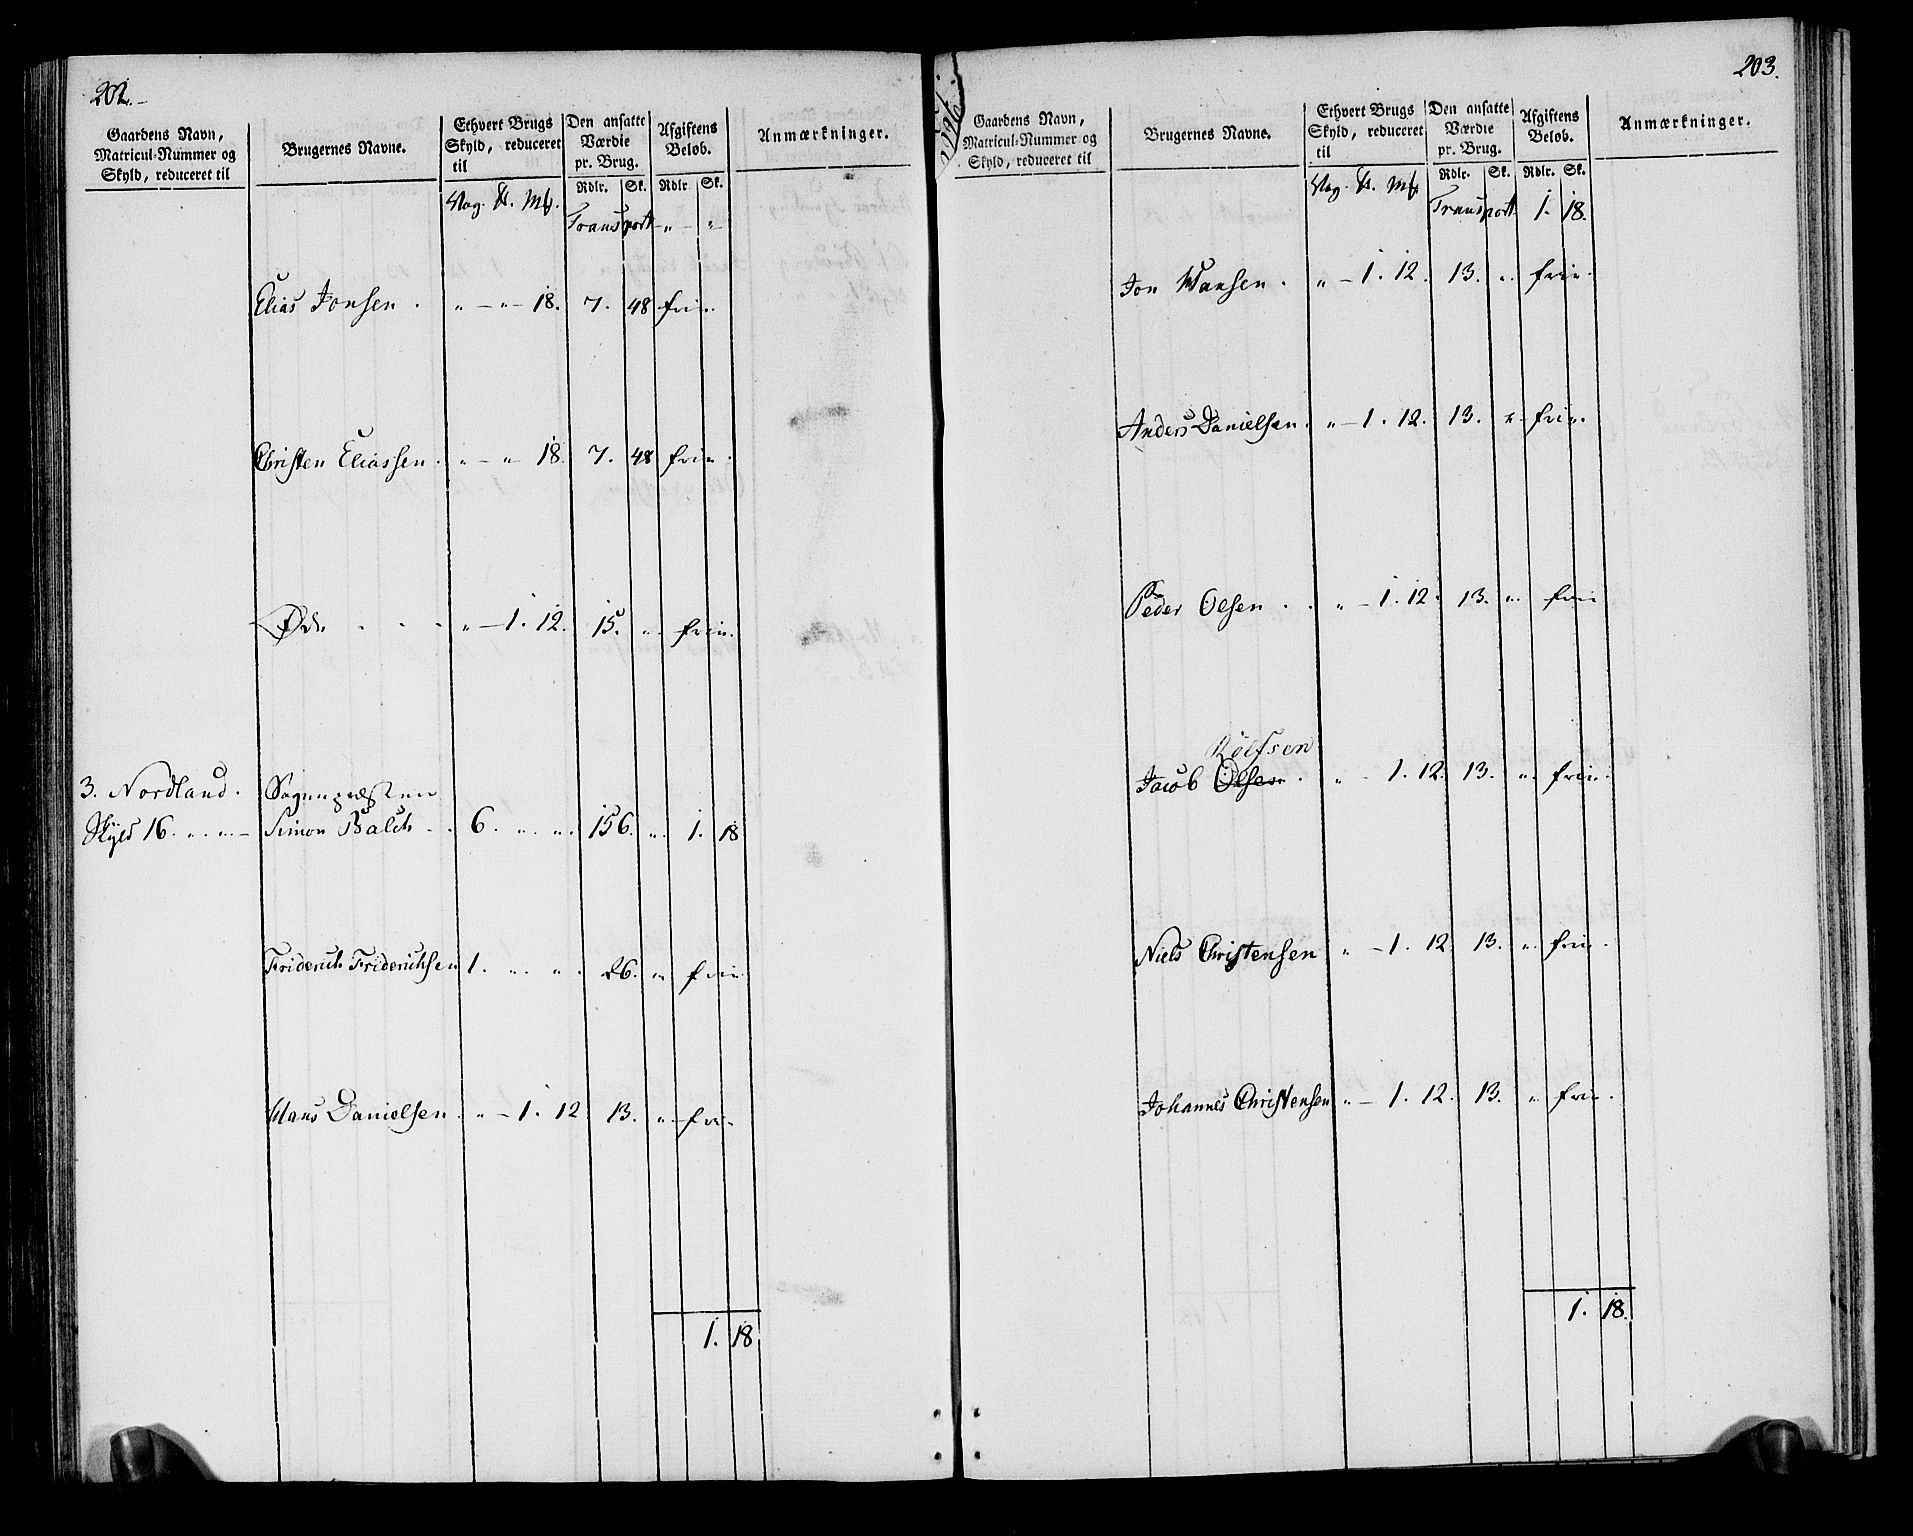 202.
Gaardens Navn, Matricul-Nummer og Skyld, reduceret til
Brugernes Navne.
Ethvert Brugs Skyld, reduceret til
Den ansatte Værdie pr. Brug.
Afgiftens Beløb.
Anmærkninger.
Rdlr. Sk. Rdlr. Sk.
Vog. ℔. Mk.
Transport „ „
Elias Jonsen . „ – „ – 18. 7. 48 frie.
Christen Eliassen . „ – „ 18. 7. 48 frie.
Øde . . . „ – 1. 12. 15. „ frie.
3. Nordland. Sognepræsten
Skyld 16. „ „ – Simon Balch . . 6. „ „ 156. „ 1. 18
Friderich Friderichsen 1. „ „ 26. „ frie
Hans Danielsen . „ – 1. 12. 13. „ frie.
1. 18
203.
Gaardens Navn, Matricul-Nummer og Skyld, reduceret til
Brugernes Navne.
Ethvert Brugs Skyld, reduceret til
Den ansatte Værdie pr. Brug.
Afgiftens Beløb.
Anmærkninger.
Rdlr. Sk. Rdlr. Sk.
Vog. ℔. Mk.
Transport 1. 18.
Jon Hansen . „ – 1. 12. 13. „ frie.
Anders Danielsen . „ – 1. 12. 13. „ frie.
Peder Olsen . . „ – 1. 12. 13. „ frie
Rolfsen
Jacob Olsen . „ – 1. 12. 13. „ frie.
Niels Christensen „ – 1. 12. 13. „ frie.
Johannes Christensen „ – 1. 12. 13. „ frie.
1. 18.